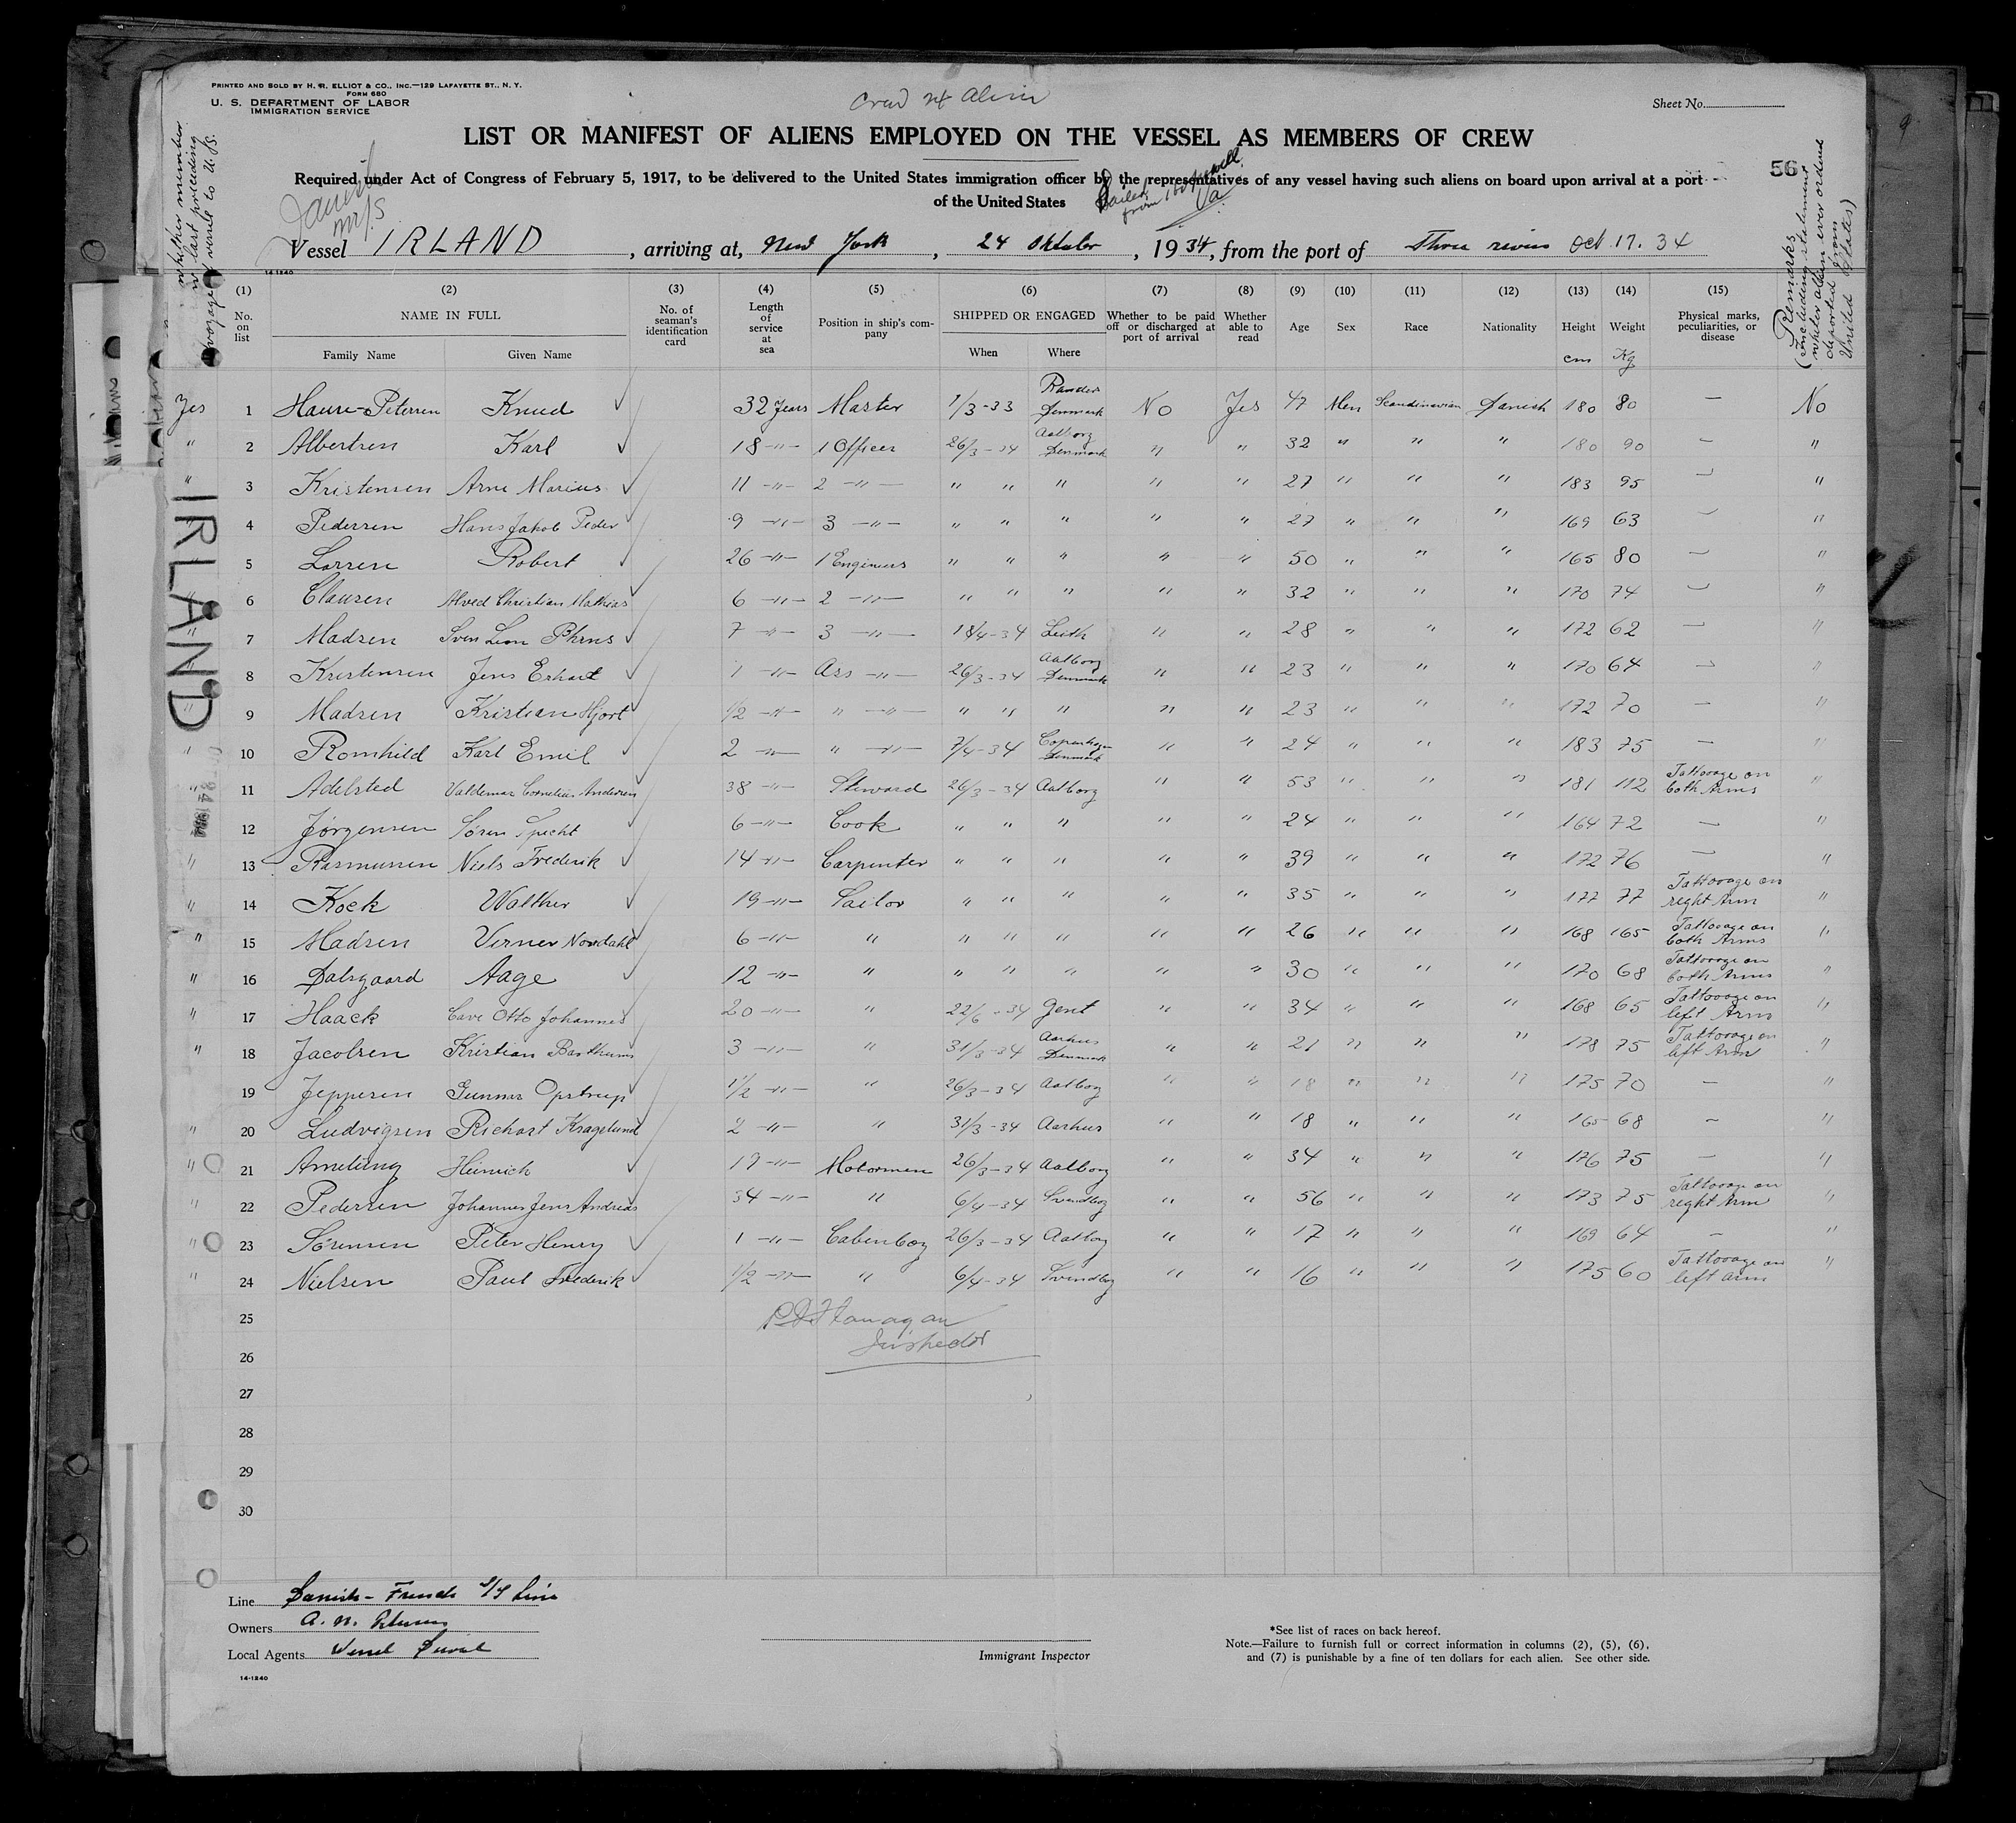 PRINTED AND SOLD BY H. R. ELLIOT & CO., INC.—129 LAFAYETTE ST., N. Y.
FORM 680
U. S. DEPARTMENT OF LABOR
IMMIGRATION SERVICE
Sheet No.
LIST OR MANIFEST OF ALIENS EMPLOYED ON THE VESSEL AS MEMBERS OF CREW
Required under Act of Congress of February 5, 1917, to be delivered to the United States immigration officer by the representatives of any vessel having such aliens on board upon arrival at a port
of the United States
56
Vessel IRLAND, arriving at, New York, 24 Oktober, 1934, from the port of Three rivers Oct 17. 34
14-1240
whether member in last preceding voyage of vessel to U.S.
(1) No. on list
(2) NAME IN FULL
Family Name Given Name
(3) No. of seaman's identification card
(4) Length of service at sea
(5) Position in ship's company
(6) SHIPPED OR ENGAGED
When Where
(7) Whether to be paid off or discharged at port of arrival
(8) Whether able to read
(9) Age
(10) Sex
(11) Race
(12) Nationality
(13) Height cm
(14) Weight Kg
(15) Physical marks, peculiarities, or disease
Remarks (Including statement whether alien ever ordered deported from United States)
Yes 1 Haure-Petersen Knud 32 Years Master 1/3-33 Randers Denmark No Yes 47 Men Scandinavian Danish 180 80 — No
" 2 Albertsen Karl 18 -"- 1 Officer 26/3-34 Aalborg Denmark " " 32 " " " 180 90 — "
" 3 Kristensen Arne Marius 11 -"- 2 -"- " " " " " 27 " " " 183 95 — "
" 4 Pedersen Hans Jakob Peder 9 -"- 3 -"- " " " " " 27 " " " 169 63 — "
" 5 Larsen Robert 26 -"- 1 Engineers " " " " " 50 " " " 165 80 — "
" 6 Clausen Alved Christian Mathias 6 -"- 2 -"- " " " " " 32 " " " 170 74 — "
" 7 Madsen Sven Leon 7 -"- 3 -"- 18/4-34 Leith " " 28 " " " 172 62 — "
" 8 Kristensen Jens Erhart 1 -"- Ass -"- 26/3-34 Aalborg Denmark " " 23 " " " 170 64 — "
" 9 Madsen Kristian Hjort 1/2 -"- " -"- " " " " " 23 " " " 172 70 — "
" 10 Romhild Karl Emil 2 -"- " -"- 7/4-34 Copenhagen Denmark " " 24 " " " 183 75 — "
" 11 Adelsted Valdemar Cornelius Andersen 38 -"- Steward 26/3-34 Aalborg " " 53 " " 181 112 Tattooage on both Arms "
12 Jørgensen Søren Specht 6 -"- Cook " " " " " 24 " " " 164 72 — "
" 13 Rasmussen Niels Frederik 14 -"- Carpenter " " " " " 39 " " " 172 76 — "
" 14 Kock Walther 19 -"- Sailor " " " " " 35 " " " 177 77 Tattooage on right Arm "
" 15 Madsen Verner Nordahl 6 -"- " " " " " " 26 " " " 168 165 Tattooage on both Arms "
" 16 Dalsgaard Aage 12 -"- " " " " " " 30 " " " 170 68 Tattooage on both Arms "
" 17 Haack Otto Johannes 20 -"- " 22/6-34 Gent " " 34 " " " 168 65 Tattooage on left Arm "
" 18 Jacobsen Kristian 3 -"- " 31/3-34 Aarhus Denmark " " 21 " " " 178 75 Tattooage on left Arm "
19 Jeppesen Gunnar Opstrup 1 1/2 -"- " 26/3-34 Aalborg " " 18 " " " 175 70 — "
" 20 Ludvigsen Richart Kragelund 2 -"- " 31/3-34 Aarhus " " 18 " " " 165 68 — "
" 21 Amelung Heinrich 17 -"- Motormen 26/3-34 Aalborg " " 34 " " " 176 75 — "
" 22 Pedersen Johannes Jens Andreas 34 -"- " 6/4-34 Svendborg " " 56 " " " 173 75 Tattooage on right Arm "
" 23 Sørensen Peter Henry 1 -"- Cabenboy 26/3-34 Aalborg " " 17 " " " 169 64 — "
" 24 Nielsen Paul Frederik 1/2 -"- " 6/4-34 Svendborg " " 16 " " " 175 60 Tattooage on left arm "
25
Flanagan
Inspector
26
27
28
29
30
IRLAND
Line Danish-French S/S Line
Owners A. N. Petersen
Local Agents Wessel Duval
14-1240
Immigrant Inspector
*See list of races on back hereof.
Note.—Failure to furnish full or correct information in columns (2), (5), (6),
and (7) is punishable by a fine of ten dollars for each alien. See other side.